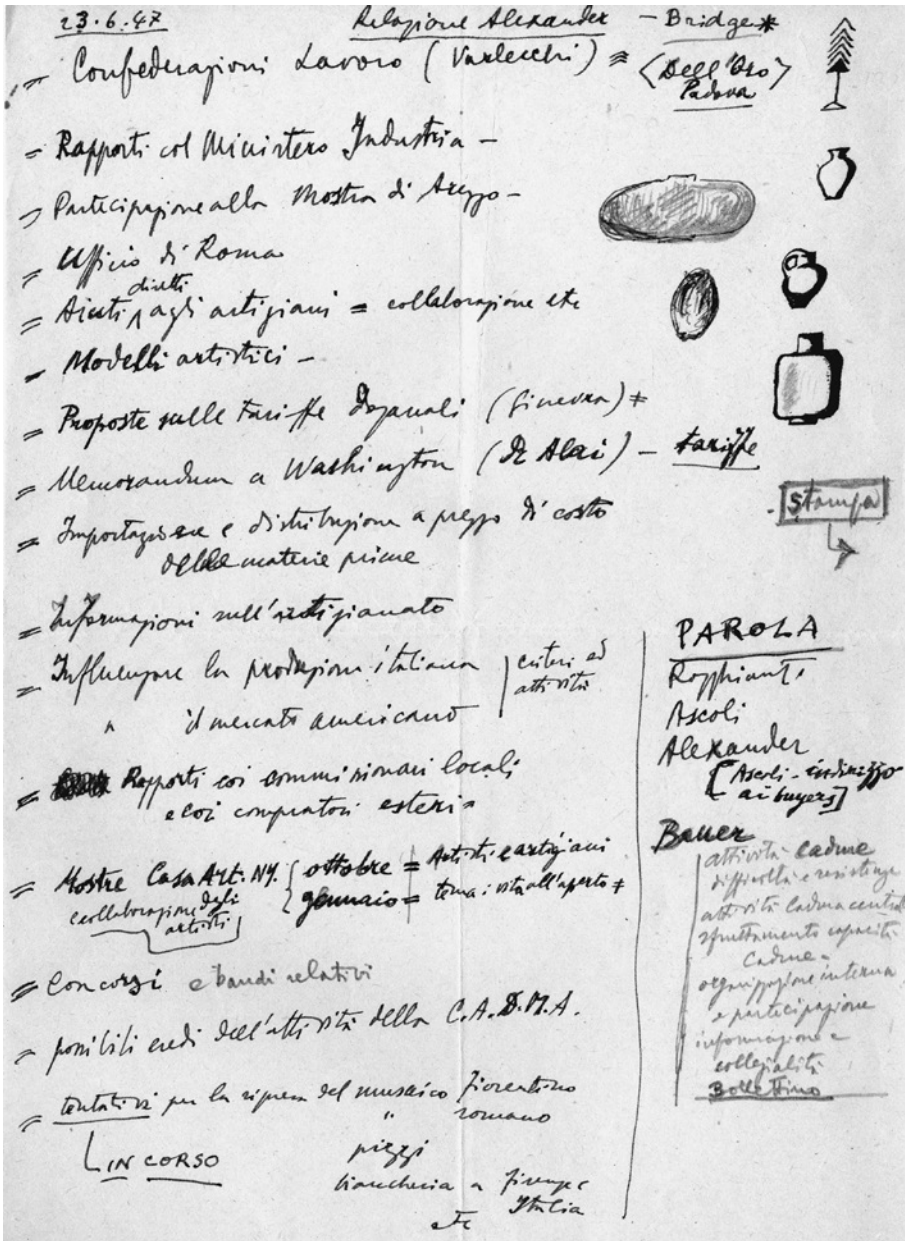 23.6.47 Relazione Alexander — Bridge*
= Confederazioni Lavoro (Varlecchi) = (Dell'Oro)
Padova
= Rapporti col Ministero Industria —
= Partecipazione alla Mostra di Arezzo —
= Ufficio di Roma
diretti
= Aiuti agli artigiani = collaborazione etc
= Modelli artistici —
= Proposte sulle tariffe doganali (Ginevra) ≠
= Memorandum a Washington (D'Alai) — tariffe
stampa
= Importazione e distribuzione a prezzo di costo
delle materie prime
= Informazioni sull'artigianato
= Influenzare la produzione italiana
" il mercato americano
criteri ed
attività
= Rapporti coi commissionari locali
e coi compratori esteri =
= Mostre Casa Art. NY. { ottobre = Artisti e artigiani
{ gennaio = tema: vita all'aperto ≠
e collaborazione degli
artisti
= Concorsi e bandi relativi
= possibili eredi dell'attività della C.A.D.M.A.
= tentativi per la ripresa del musaico fiorentino
" romano
IN CORSO
pizzi
biancheria a Firenze
Italia
etc
PAROLA
Ragghianti
Ascoli
Alexander
[Ascoli - indirizzo
ai buyers]
Bauer
attività Cadma
difficoltà e resistenze
attività Cadma central
sfruttamento capacità
Cadma =
organizzazione interna
e partecipazione
informazione e
collegialità
Bollettino